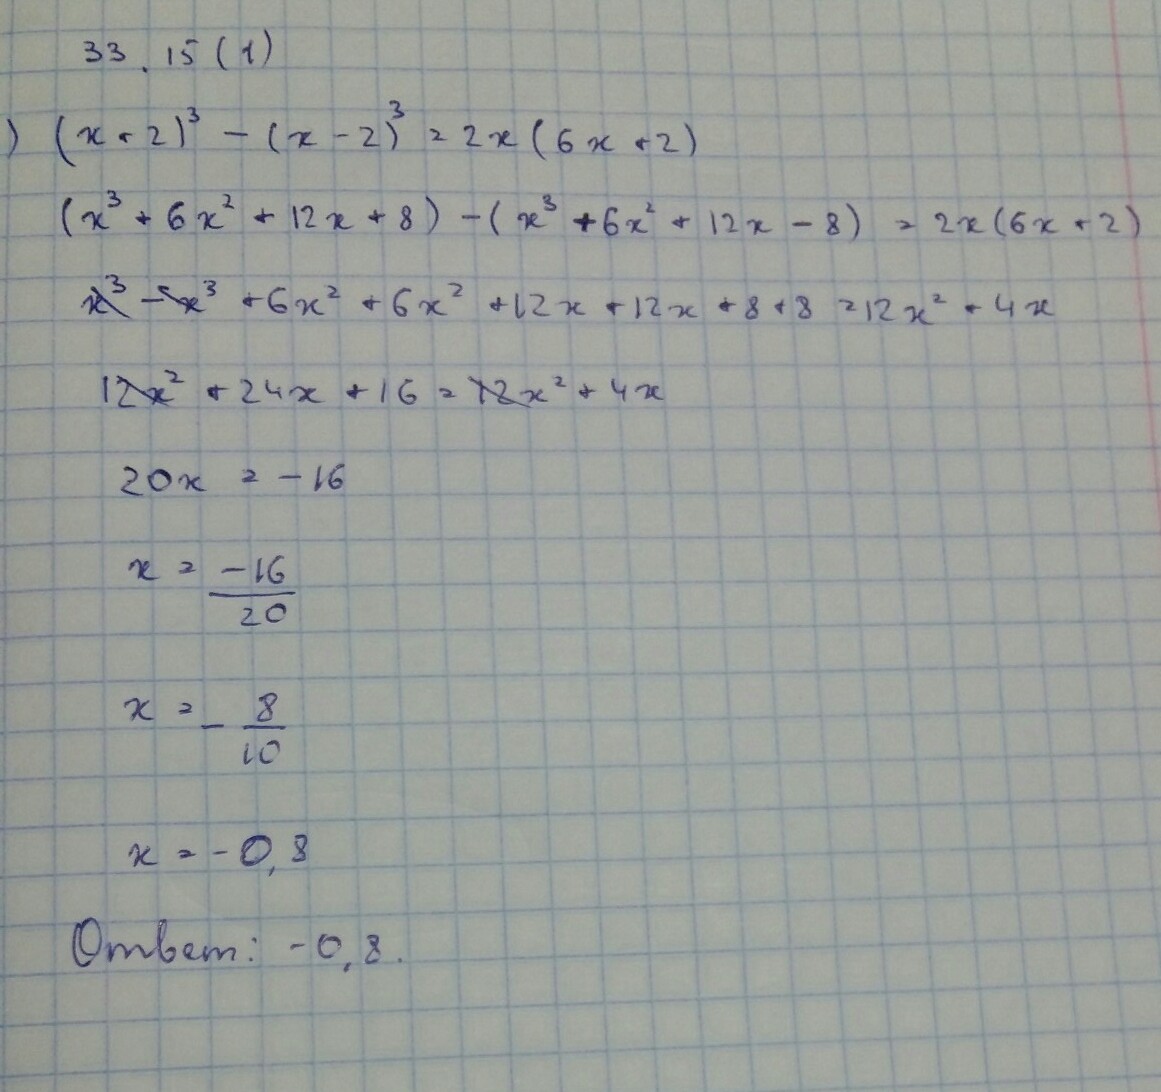 33.15(1)
) (x+2)³ - (x-2)³ = 2x(6x+2)
(x³+6x²+12x+8) - (x³+6x²+12x-8) = 2x(6x+2)
x³ - x³ +6x² +6x² +12x +12x +8+8 = 12x² + 4x
12x² + 24x + 16 = 12x² + 4x
20x = -16
x = -16/20
x = - 8/10
x = -0,8
Ответ: -0,8.